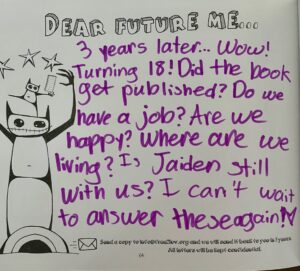 DEAR FUTURE ME...
3 years later... Wow!
Turning 18! Did the book
get published? Do we
have a job? Are we
happy? Where are we
living? Is Jaiden still
with us? I can't wait
to answer these again!
Send a copy to
and we will send it back to you in 3 years.
All letters will be kept confidential.